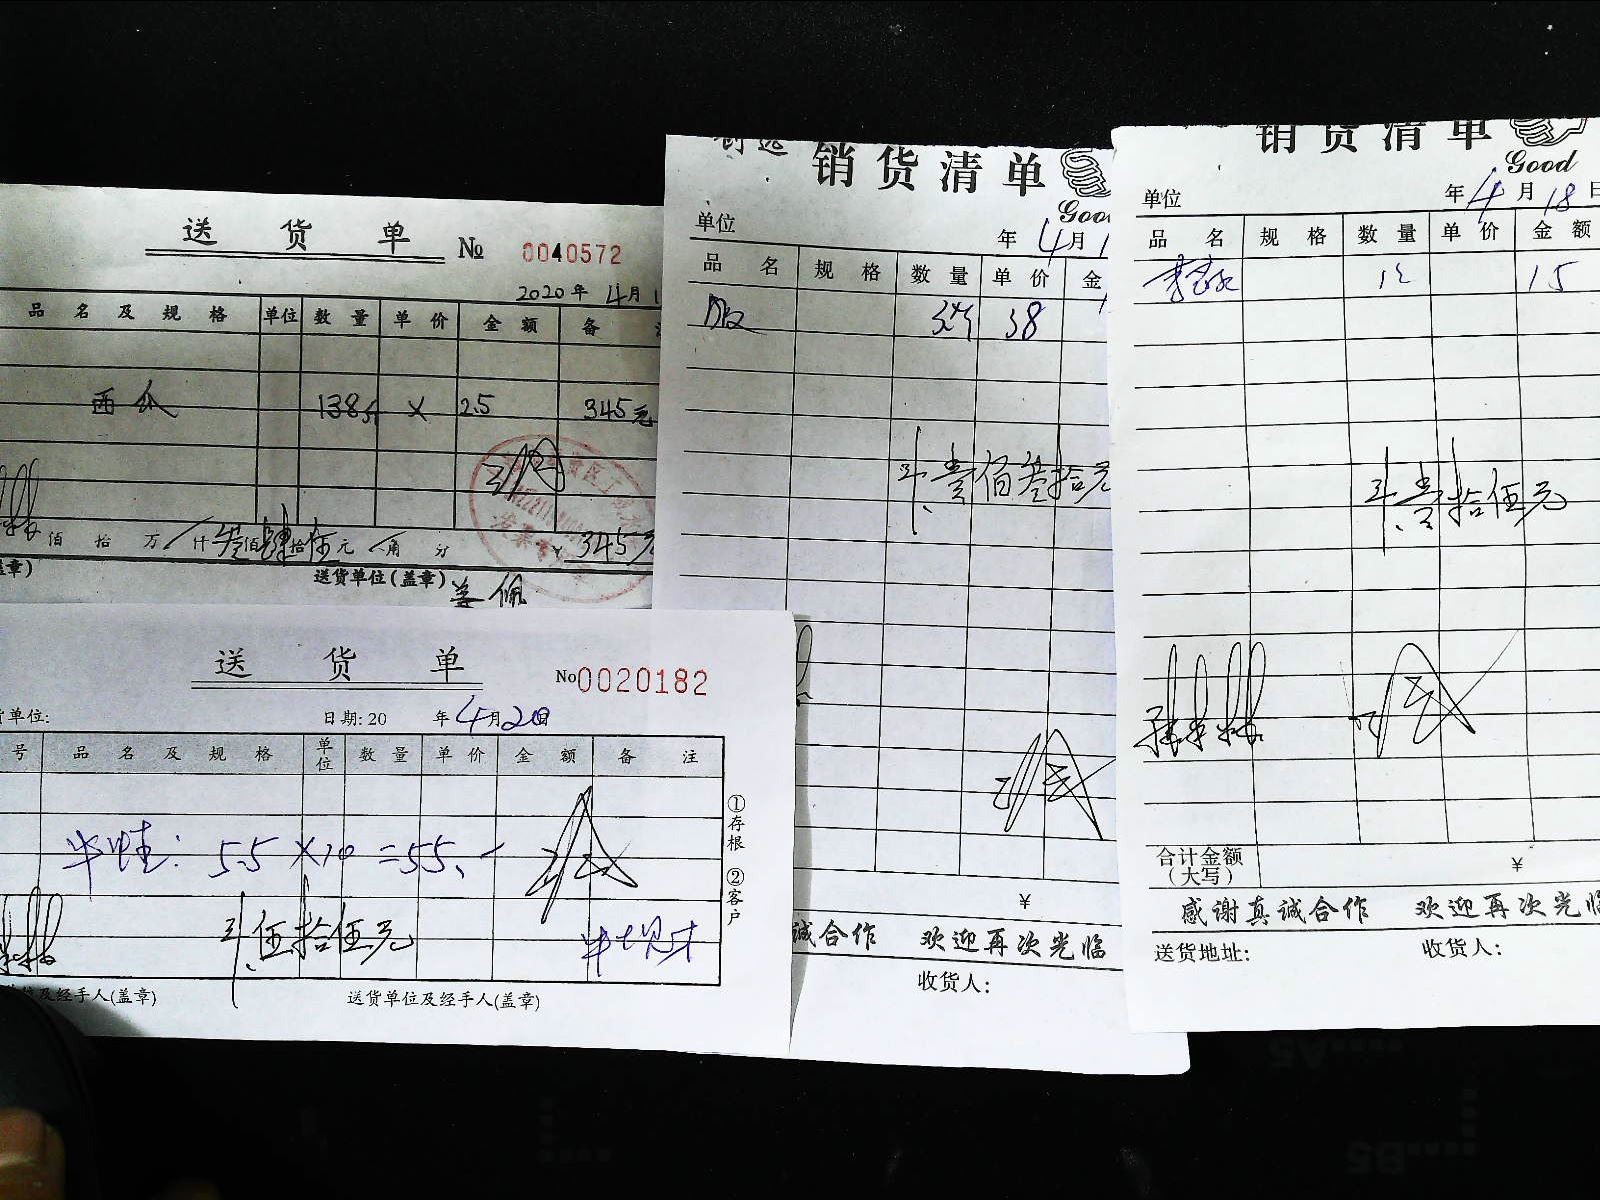 送 货 单
№ 0040572
2020年 4月1
品 名 及 规 格 单位 数 量 单 价 金 额 备
西瓜 138斤 × 2.5 345元
佰 拾 万 仟叁佰肆拾伍元 角 分 ¥ 345元
盖章)
送货单位(盖章) 姜佩
送 货 单
No 0020182
货单位:
日期:20 年4月20日
号 品 名 及 规 格 单位 数 量 单 价 金 额 备 注
牛蛙: 5.5×10=55.-
伍拾伍元
①存根 ②客户
位及经手人(盖章)
送货单位及经手人(盖章)
销货清单
Good
单位
年 4月1
品 名 规 格 数 量 单 价 金
38
壹佰叁拾元
¥
诚合作 欢迎再次光临
收货人:
销货清单
Good
单位
年 4月18日
品 名 规 格 数 量 单 价 金 额
15
壹拾伍元
合计金额
(大写)
¥
感谢真诚合作 欢迎再次光临
送货地址:
收货人: